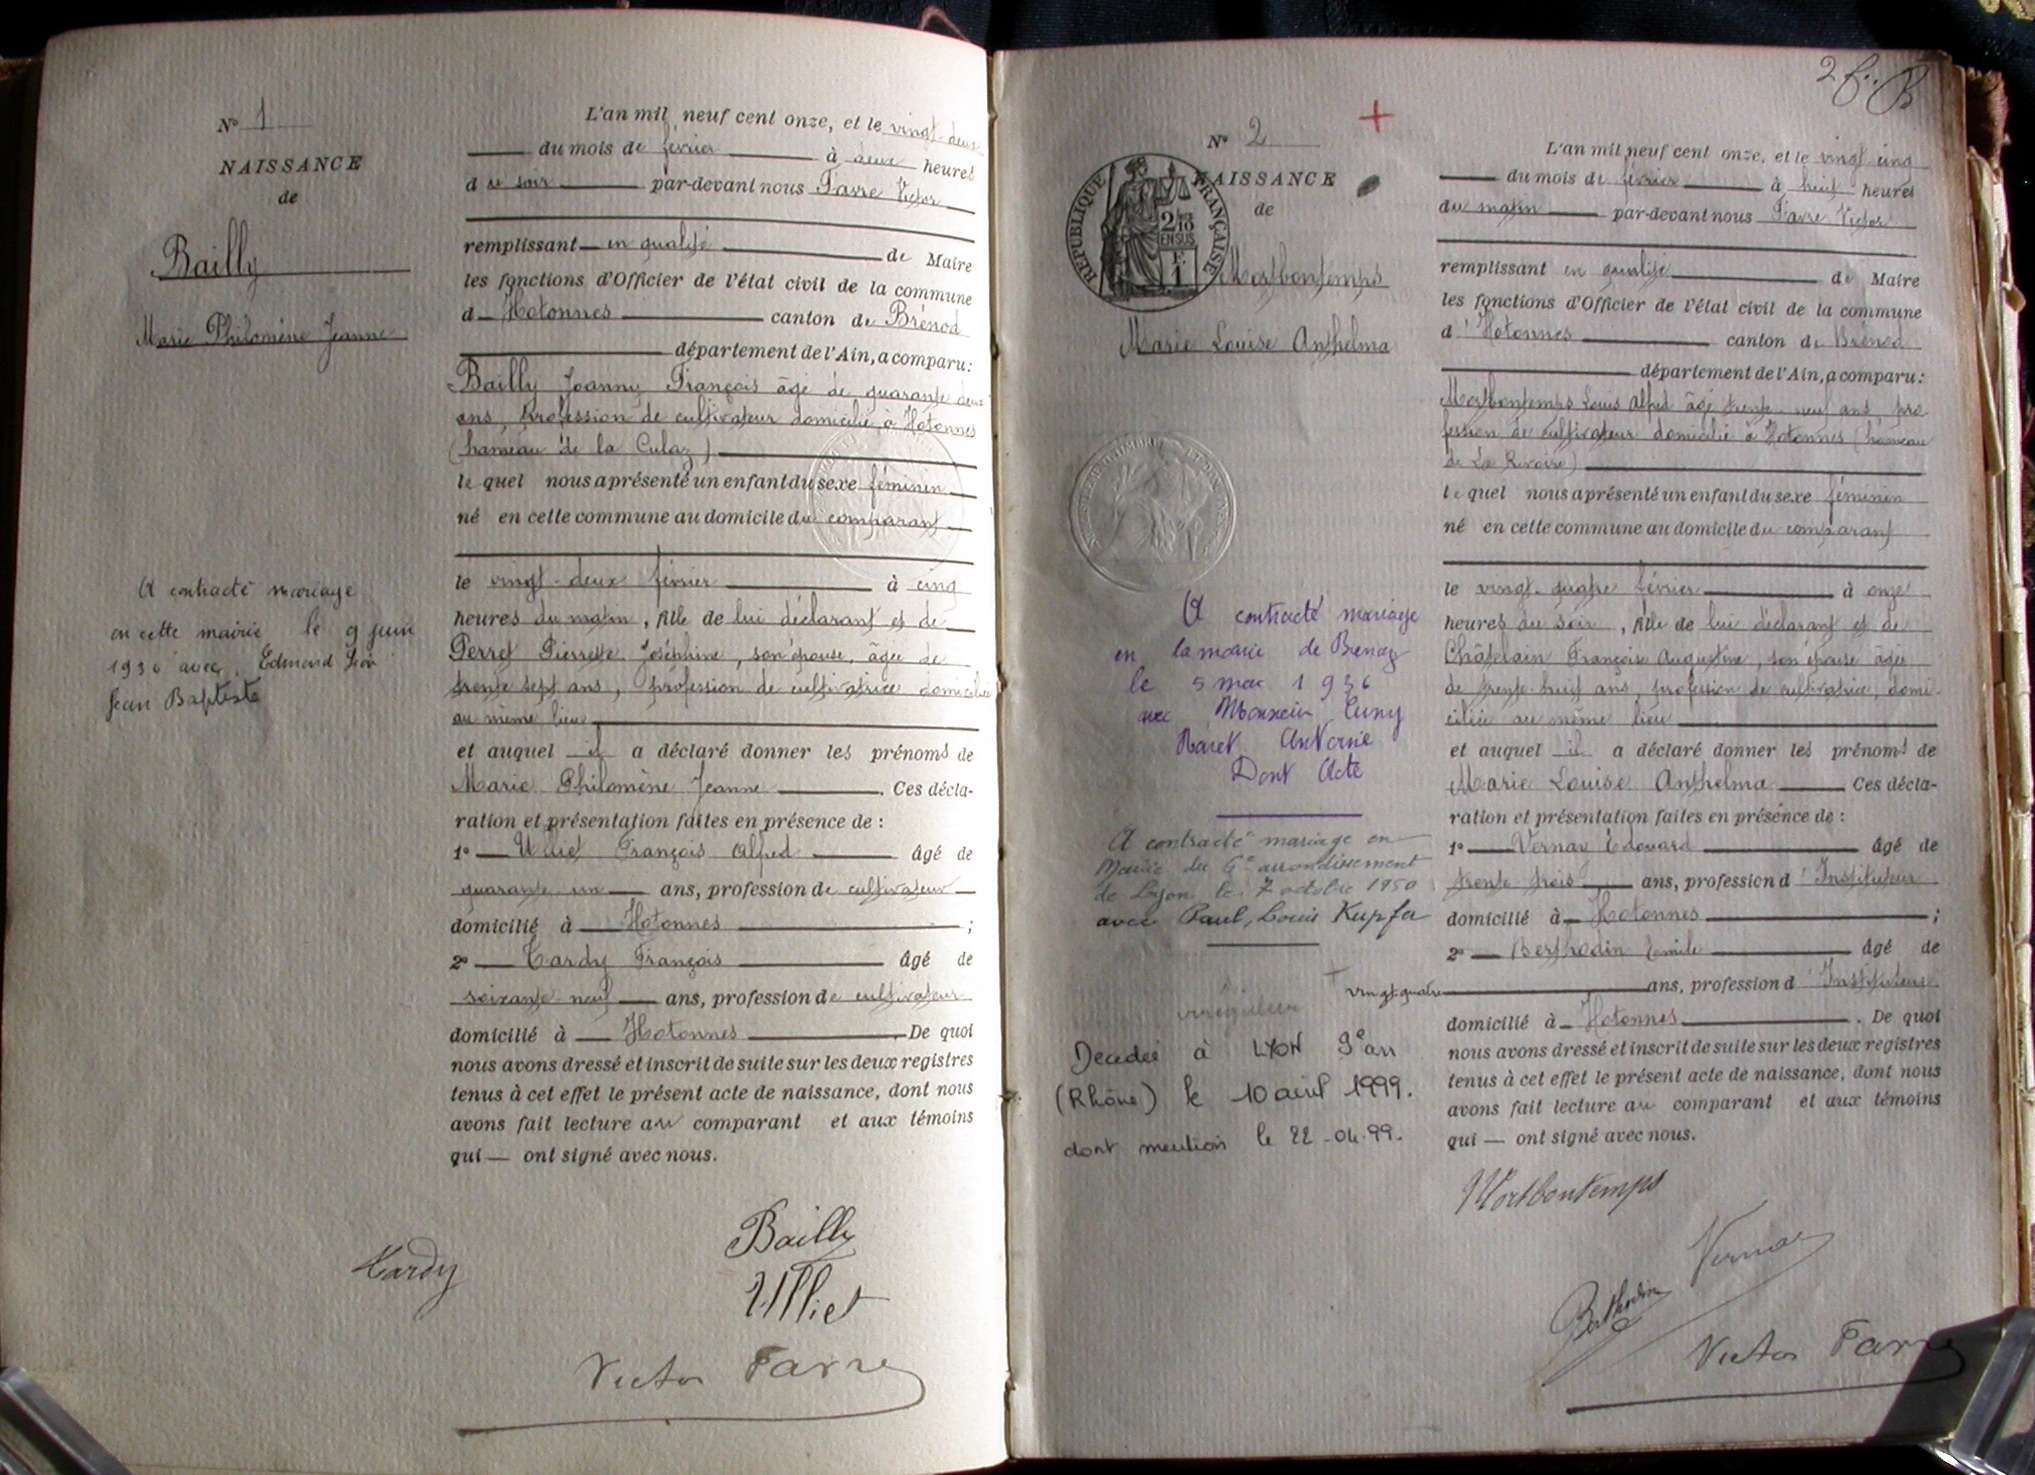 N° 1
NAISSANCE
de
Bailly
Marie Philomène Jeanne
A contracté mariage
en cette mairie le 9 juin
1930 avec Edmond Léon
Jean Baptiste
L'an mil neuf cent onze, et le vingt-deux
du mois de février à deux heures
du soir par-devant nous Favre Victor
remplissant en qualité de Maire
les fonctions d'Officier de l'état civil de la commune
d Hotonnes canton de Brénod
département de l'Ain, a comparu:
Bailly Joanny François âgé de quarante deux
ans, profession de cultivateur domicilié à Hotonnes
(hameau de la Culaz)
le quel nous a présenté un enfant du sexe féminin
né en cette commune au domicile du comparant
le vingt-deux février à cinq
heures du matin, fille de lui déclarant et de
Perret Pierrette Joséphine, son épouse, âgée de
trente sept ans, profession de cultivatrice domiciliée
au même lieu
et auquel il a déclaré donner les prénoms de
Marie Philomène Jeanne. Ces décla-
ration et présentation faites en présence de :
1° François Alfred âgé de
quarante un ans, profession de cultivateur
domicilié à Hotonnes ;
2° Tardy François âgé de
soixante neuf ans, profession de cultivateur
domicilié à Hotonnes. De quoi
nous avons dressé et inscrit de suite sur les deux registres
tenus à cet effet le présent acte de naissance, dont nous
avons fait lecture au comparant et aux témoins
qui — ont signé avec nous.
Bailly
Tardy
Victor Favre
2
N° 2
+
NAISSANCE
de
RÉPUBLIQUE FRANÇAISE
2/10
EN SUS
1
Mortbontemps
Marie Louise Anthelma
A contracté mariage
en la mairie de
le 5 mai 1936
avec Monsieur Cuny
Antoine
Dont Acte
A contracté mariage en
Mairie du arrondissement
de Lyon le 7 octobre 1950
avec Paul, Louis Kupfer
Décédée à LYON 9e arr
(Rhône) le 10 avril 1999.
dont mention le 22-04-99.
L'an mil neuf cent onze, et le vingt cinq
du mois de février à huit heures
du matin par-devant nous Favre Victor
remplissant en qualité de Maire
les fonctions d'Officier de l'état civil de la commune
d'Hotonnes canton de Brénod
département de l'Ain, a comparu:
Mortbontemps Louis Alfred âgé trente neuf ans, pro
fession de cultivateur domicilié à Hotonnes (hameau
de La Revoire)
le quel nous a présenté un enfant du sexe féminin
né en cette commune au domicile du comparant
le vingt-quatre février à onze
heures du soir, fille de lui déclarant et de
Châtelain Françoise Augustine, son épouse âgée
de trente huit ans, profession de cultivatrice, domi-
ciliée au même lieu
et auquel il a déclaré donner les prénoms de
Marie Louise Anthelma Ces décla-
ration et présentation faites en présence de :
1° Vernay Édouard âgé de
trente trois ans, profession d'Instituteur
domicilié à Hotonnes ;
2° Berthodin âgé de
vingt-quatre ans, profession d'Instituteur
domicilié à Hotonnes. De quoi
nous avons dressé et inscrit de suite sur les deux registres
tenus à cet effet le présent acte de naissance, dont nous
avons fait lecture au comparant et aux témoins
qui — ont signé avec nous.
Mortbontemps
Vernay
Berthodin
Victor Favre